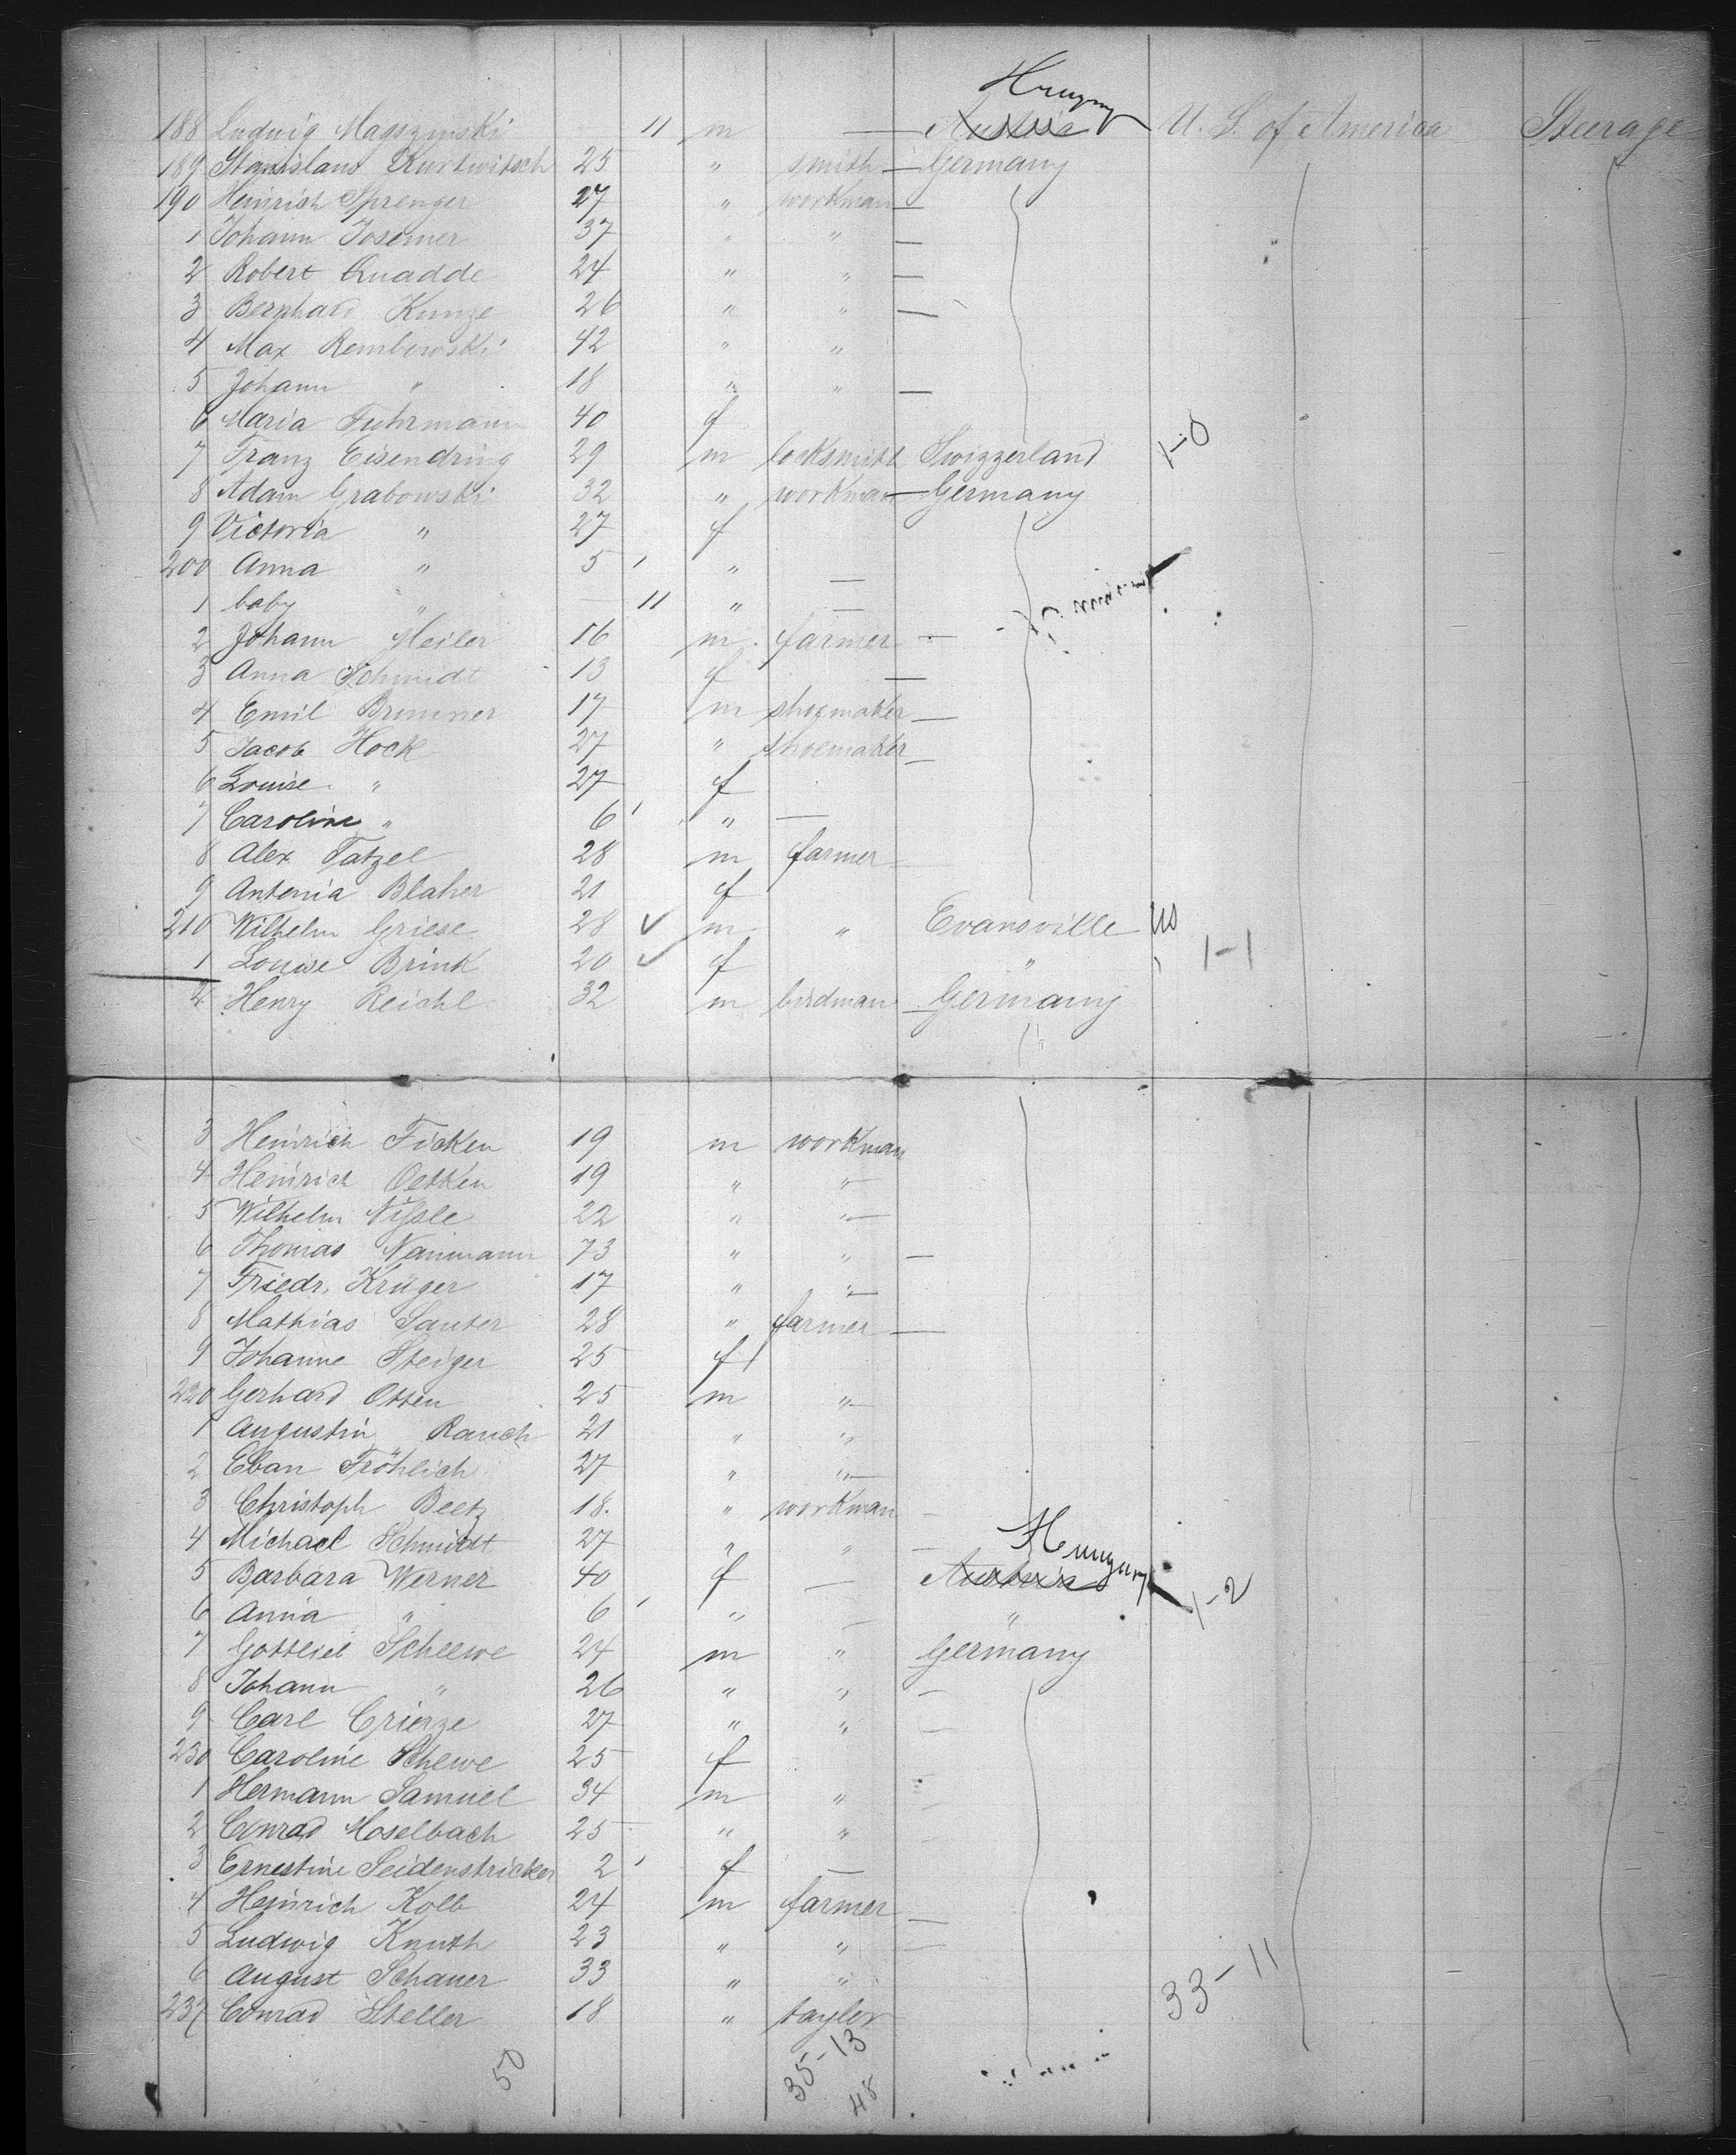 Hungary
188 Ludwig Magszynski 11 m — Austria U. S. of America Steerage
189 Stanislaus Kurtwitsch 25 " smith — Germany
190 Heinrich Sprenger 27 " workman —
1 Johann Josemer 37 " " —
2 Robert Quadde 24 " " —
3 Bernhard Kunze 26 " " —
4 Max Rembowski 42 " "
5 Johann " 18 " " —
6 Maria Fuhrmann 40 f
7 Franz Eisendring 29 m locksmith Swizzerland 1-0
8 Adam Grabowski 32 " workman — Germany
9 Victoria " 27 f
200 Anna " 5 ' " —
1 baby " — 11 " —
2 Johann Meiler 16 m farmer —
3 Anna Schmidt 13 f —
4 Emil Brunner 17 m shoemaker —
5 Jacob Hock 27 " shoemaker —
6 Louise " 27 f
7 Caroline " 6 ' " —
8 Alex Tatzel 28 m farmer
9 Antonia Blaher 21 f
210 Wilhelm Griese 28 ✓ m " Evansville US
1 Louise Brink 20 ✓ f " 1-1
2 Henry Reichl 32 m birdman — Germany
3 Heinrich Ficken 19 m workman
4 Heinrich Oetken 19 " "
5 Wilhelm Nißle 22 " " —
6 Thomas Naumann 73 " " —
7 Friedr. Krüger 17 " "
8 Mathias Sauter 28 " farmer —
9 Johanne Steiger 25 f
220 Gerhard Otten 25 m "
1 Augustin Rauch 21 " "
2 Eban Fröhlich 27 " " —
3 Christoph Beetz 18. " workman —
4 Michael Schmidt 27 " " — Hungary
5 Barbara Werner 40 f — Austria 1-2
6 Anna " 6 ' " — "
7 Gottlieb Scheewe 24 m " Germany
8 Johann " 26 " " —
9 Carl Grierze 27 " " —
230 Caroline Schewe 25 f
1 Hermann Samuel 34 m " —
2 Conrad Moselbach 25 " "
3 Ernestine Seidenstricker 2 ' f —
4 Heinrich Kolb 24 m farmer —
5 Ludwig Knuth 23 " " —
6 August Schauer 33 " "
237 Conrad Steller 18 " taylor 33-11
50 35-13
48